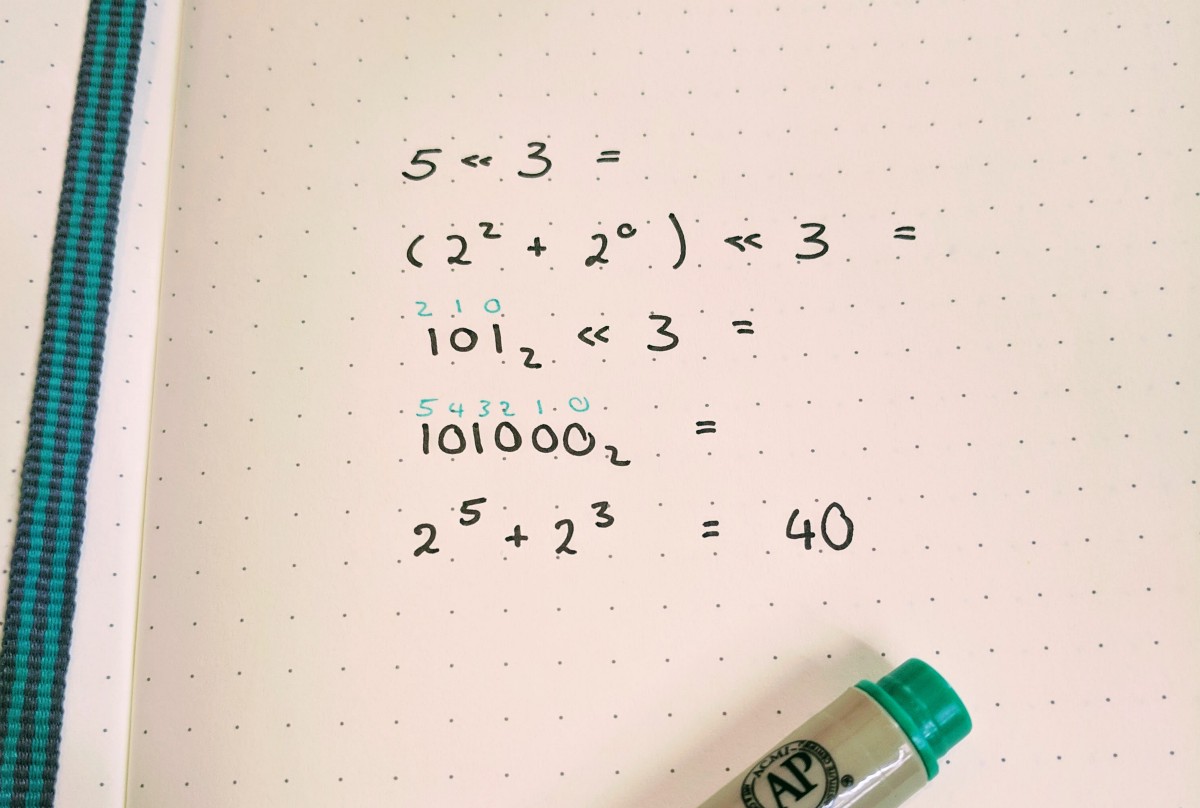 5 << 3 =
(2² + 2⁰) << 3 =
2 1 0
101₂ << 3 =
5 4 3 2 1 0
101000₂ =
2⁵ + 2³ = 40
AP